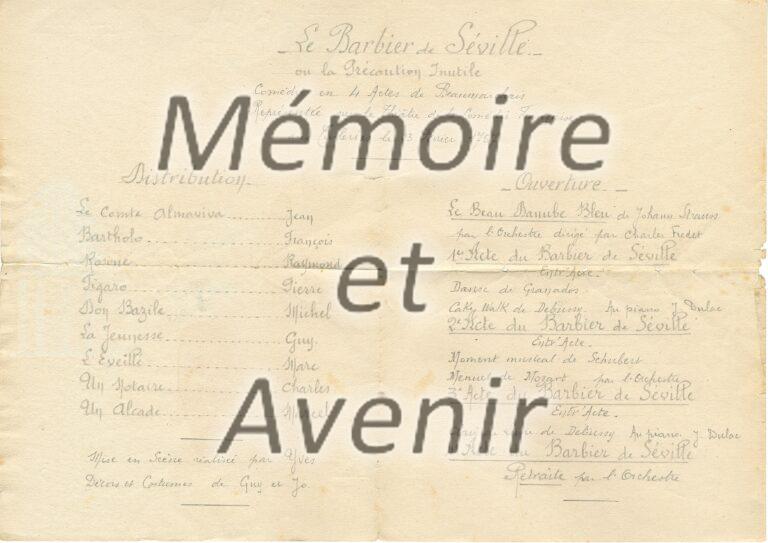 Le Barbier de Séville
ou la Précaution Inutile
Comédie en 4 Actes de Beaumarchais
Représentée
Mémoire
et
Avenir
Distribution
Le Comte Almaviva Jean
Bartholo François
Rosine Raymond
Figaro Pierre
Don Bazile Michel
La Jeunesse Guy
L'Eveillé Marc
Un Notaire Charles
Un Alcade
Mise en Scène réalisé par Yves
Décors et Costumes de Guy et Jo.
Ouverture
Le Beau Danube Bleu de Johann Strauss
par l'Orchestre dirigé par Charles
1er Acte du Barbier de Séville
Entr'Acte.
Danse de Granados.
Caky Walk de Debussy. Au piano J. Dulac
2e Acte du Barbier de Séville
Entr'Acte.
Moment musical de Schubert
Menuet de Mozart par l'Orchestre
3e Acte du Barbier de Séville
Entr'Acte.
de Debussy Au piano J. Dulac
Acte du Barbier de Séville
Retraite par l'Orchestre